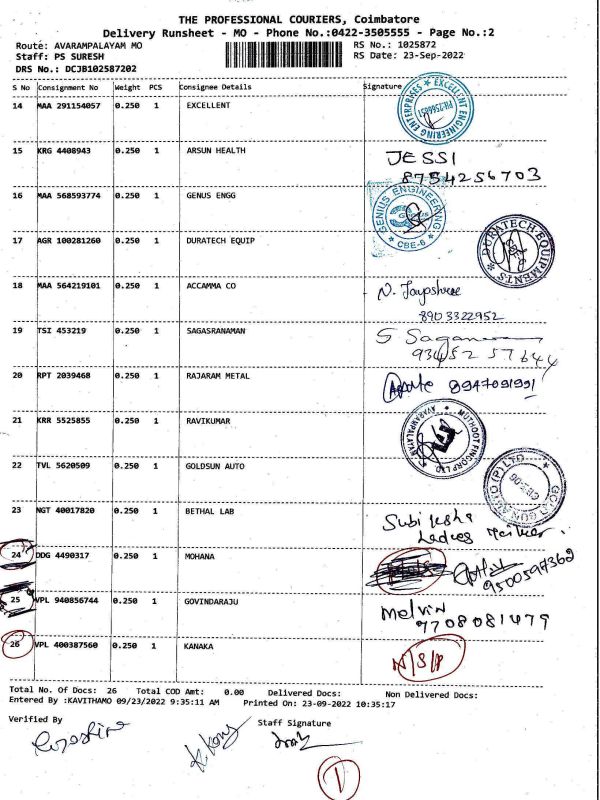 THE PROFESSIONAL COURIERS, Coimbatore
Delivery Runsheet - MO - Phone No.:0422-3505555 - Page No.:2
Route: AVARAMPALAYAM MO RS No.: 1025872
Staff: PS SURESH RS Date: 23-Sep-2022
DRS No.: DCJB102587202
S No Consignment No Weight PCS Consignee Details Signature
14 MAA 291154057 0.250 1 EXCELLENT
EXCELLENT ENGINEERING ENTERPRISES
15 KRG 4408943 0.250 1 ARSUN HEALTH JESSI
8754256703
16 MAA 568593774 0.250 1 GENUS ENGG
GENIUS ENGINEERING
CBE-6
17 AGR 100281260 0.250 1 DURATECH EQUIP
DURATECH EQUIPMENTS
CBE-6
18 MAA 564219101 0.250 1 ACCAMMA CO N. Jayashree
8903322952
19 TSI 453219 0.250 1 SAGASRANAMAN S Sagan
93452 57644
20 RPT 2039468 0.250 1 RAJARAM METAL 8947091991
21 KRR 5525855 0.250 1 RAVIKUMAR
MUTHOOT FINCORP LTD
AVARAMPALAYAM
22 TVL 5620509 0.250 1 GOLDSUN AUTO
AUTO (P) LTD
23 NGT 40017820 0.250 1 BETHAL LAB Subiksha
Ladies
24 DDG 4490317 0.250 1 MOHANA
9500597362
25 VPL 940856744 0.250 1 GOVINDARAJU Melvin
9708081479
26 VPL 400387560 0.250 1 KANAKA N/S/P
Total No. Of Docs: 26 Total COD Amt: 0.00 Delivered Docs: Non Delivered Docs:
Entered By :KAVITHAMO 09/23/2022 9:35:11 AM Printed On: 23-09-2022 10:35:17
Verified By Staff Signature
1